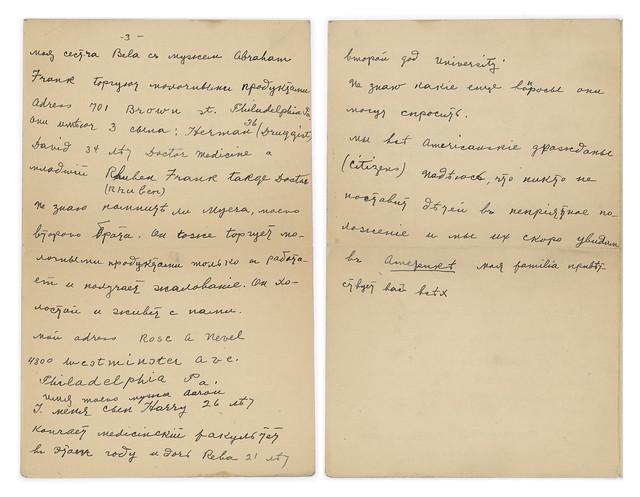 -3-
моя сестра Bela съ мужемъ Abraham
Frank торгуют молочными продуктами
Adress 701 Brown st. Philadelphia Pa
они имѣют 3 сына; Herman 36 (Druggist)
David 34 лѣт Doctor medicine а
младший Rhuben Frank также Doctor
(Rhuben)
Не знаю помнишь ли Муега, моего
второго брата. Он тоже торгует мо-
лочными продуктами только он работа-
ет и получает жалование. Он хо-
лостой и живет с нами.
мой adress Rose A Nevel
4300 Westminster Ave.
Philadelphia Pa.
имя моего мужа Aaron
У меня сын Harry 26 лѣт
кончает medicinский факультет
въ этом году и дочь Reba 21 лѣт
второй год University
Не знаю какие еще вопросы они
могут спросить.
мы всѣ Американские граждане
(citizens) надѣюсь, что никто не
поставит дѣтей въ непрiятное по-
ложение и мы их скоро увидим
въ Америкѣ моя familia привѣт-
ствует вас всѣх